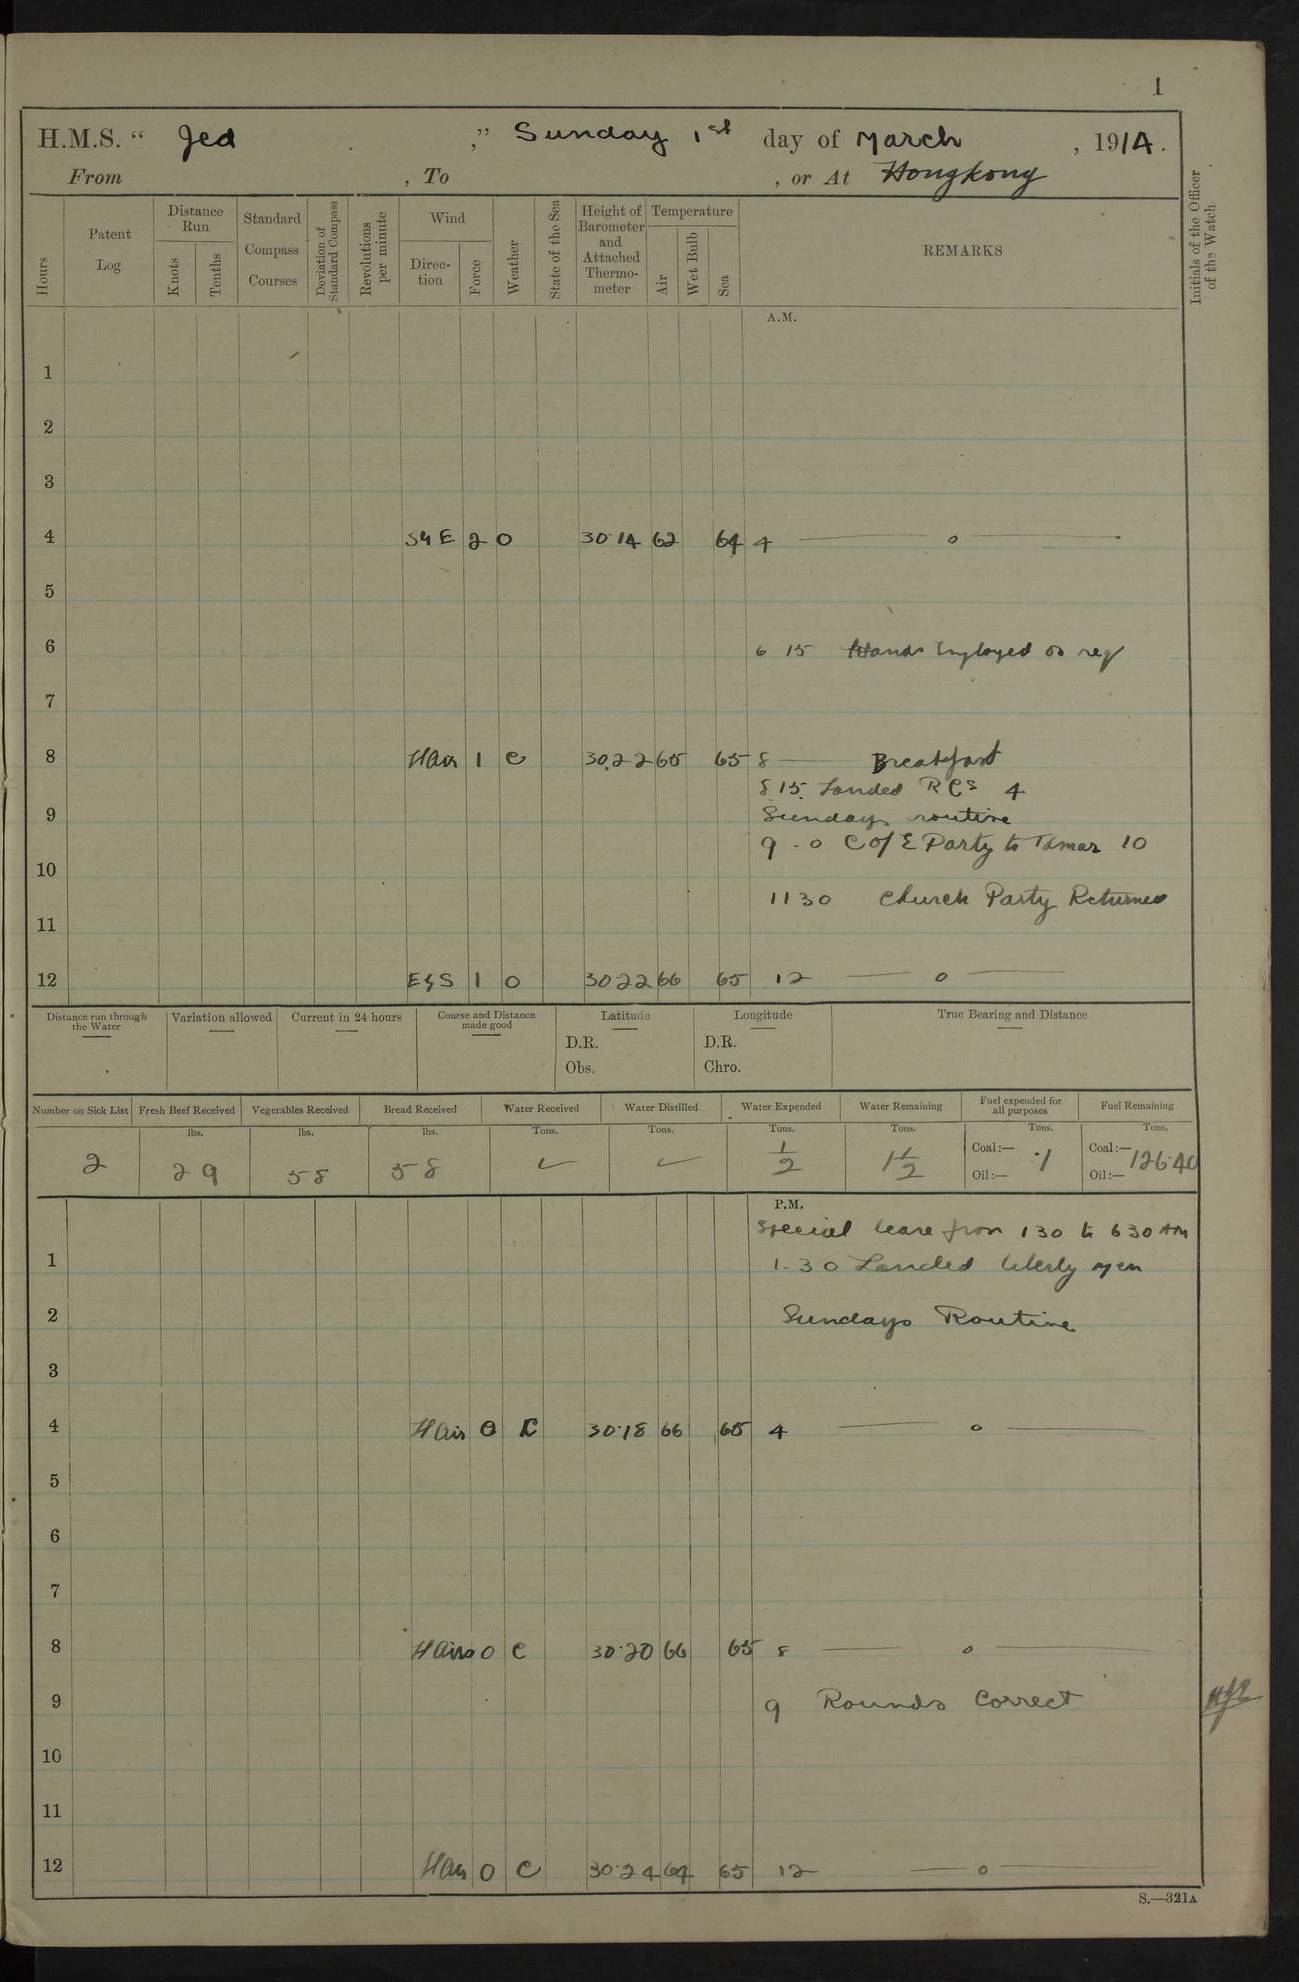 1
H.M.S. " Jed ," Sunday 1st day of March , 1914.
From , To , or At Hongkong
Hours
Patent Log
Distance Run
Knots
Tenths
Standard Compass Courses
Deviation of Standard Compass
Revolutions per minute
Wind
Direction
Force
Weather
State of the Sea
Height of Barometer and Attached Thermometer
Temperature
Air
Wet Bulb
Sea
REMARKS
Initials of the Officer of the Watch
A.M.
1
2
3
4 2 0 30.14 62 64 4 — 0 —
5
6 6 15 Hands Employed as req
7
8 1 C 30.22 65 65 8 — Breakfast
8 15 Landed R Cs 4
9 Sundays routine
9 . 0 C of E Party to Tamar 10
10
11 30 Church Party Returned
11
12 1 0 30.22 66 65 12 — 0 —
Distance run through the Water
Variation allowed
Current in 24 hours
Course and Distance made good
Latitude
D.R.
Obs.
Longitude
D.R.
Chro.
True Bearing and Distance
Number on Sick List
Fresh Beef Received
Vegetables Received
Bread Received
Water Received
Water Distilled
Water Expended
Water Remaining
Fuel expended for all purposes
Fuel Remaining
2
lbs. 29
lbs. 58
lbs. 58
Tons. ✓
Tons. ✓
Tons. 1/2
Tons. 1 1/2
Tons. Coal:— .1 Oil:—
Tons. Coal:— 126.40 Oil:—
P.M.
Special leave from 1 30 to 6 30 AM
1 1.30 Landed liberty men
2 Sundays Routine
3
4 0 C 30.18 66 65 4 — 0 —
5
6
7
8 0 C 30.20 66 65 8 — 0 —
9 9 Rounds Correct
10
11
12 0 C 30.24 64 65 12 — 0 —
S.—321A